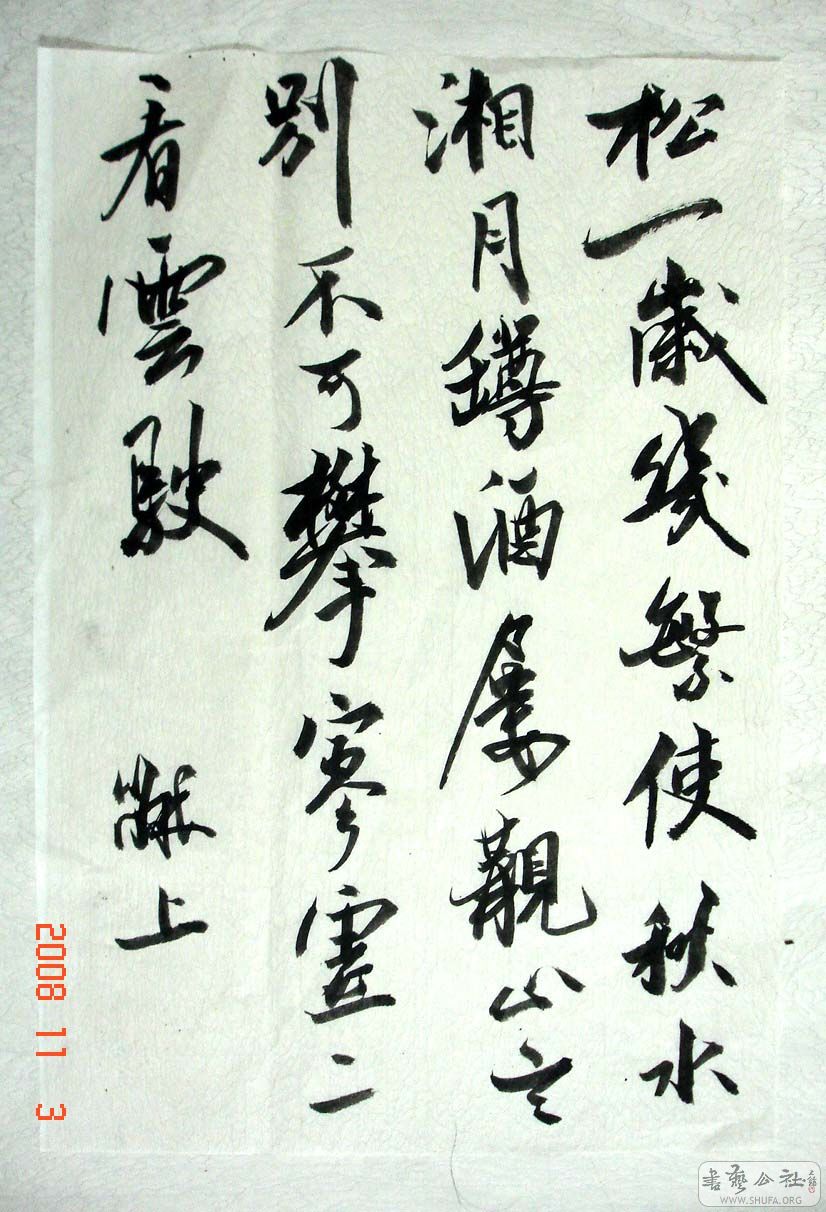 松一歲幾繁使秋水
湘月罇酒屬觀山言
别不可攀寥二
看雲駛
黻上
2008 11 3
書藝公社
WWW.SHUFA.ORG